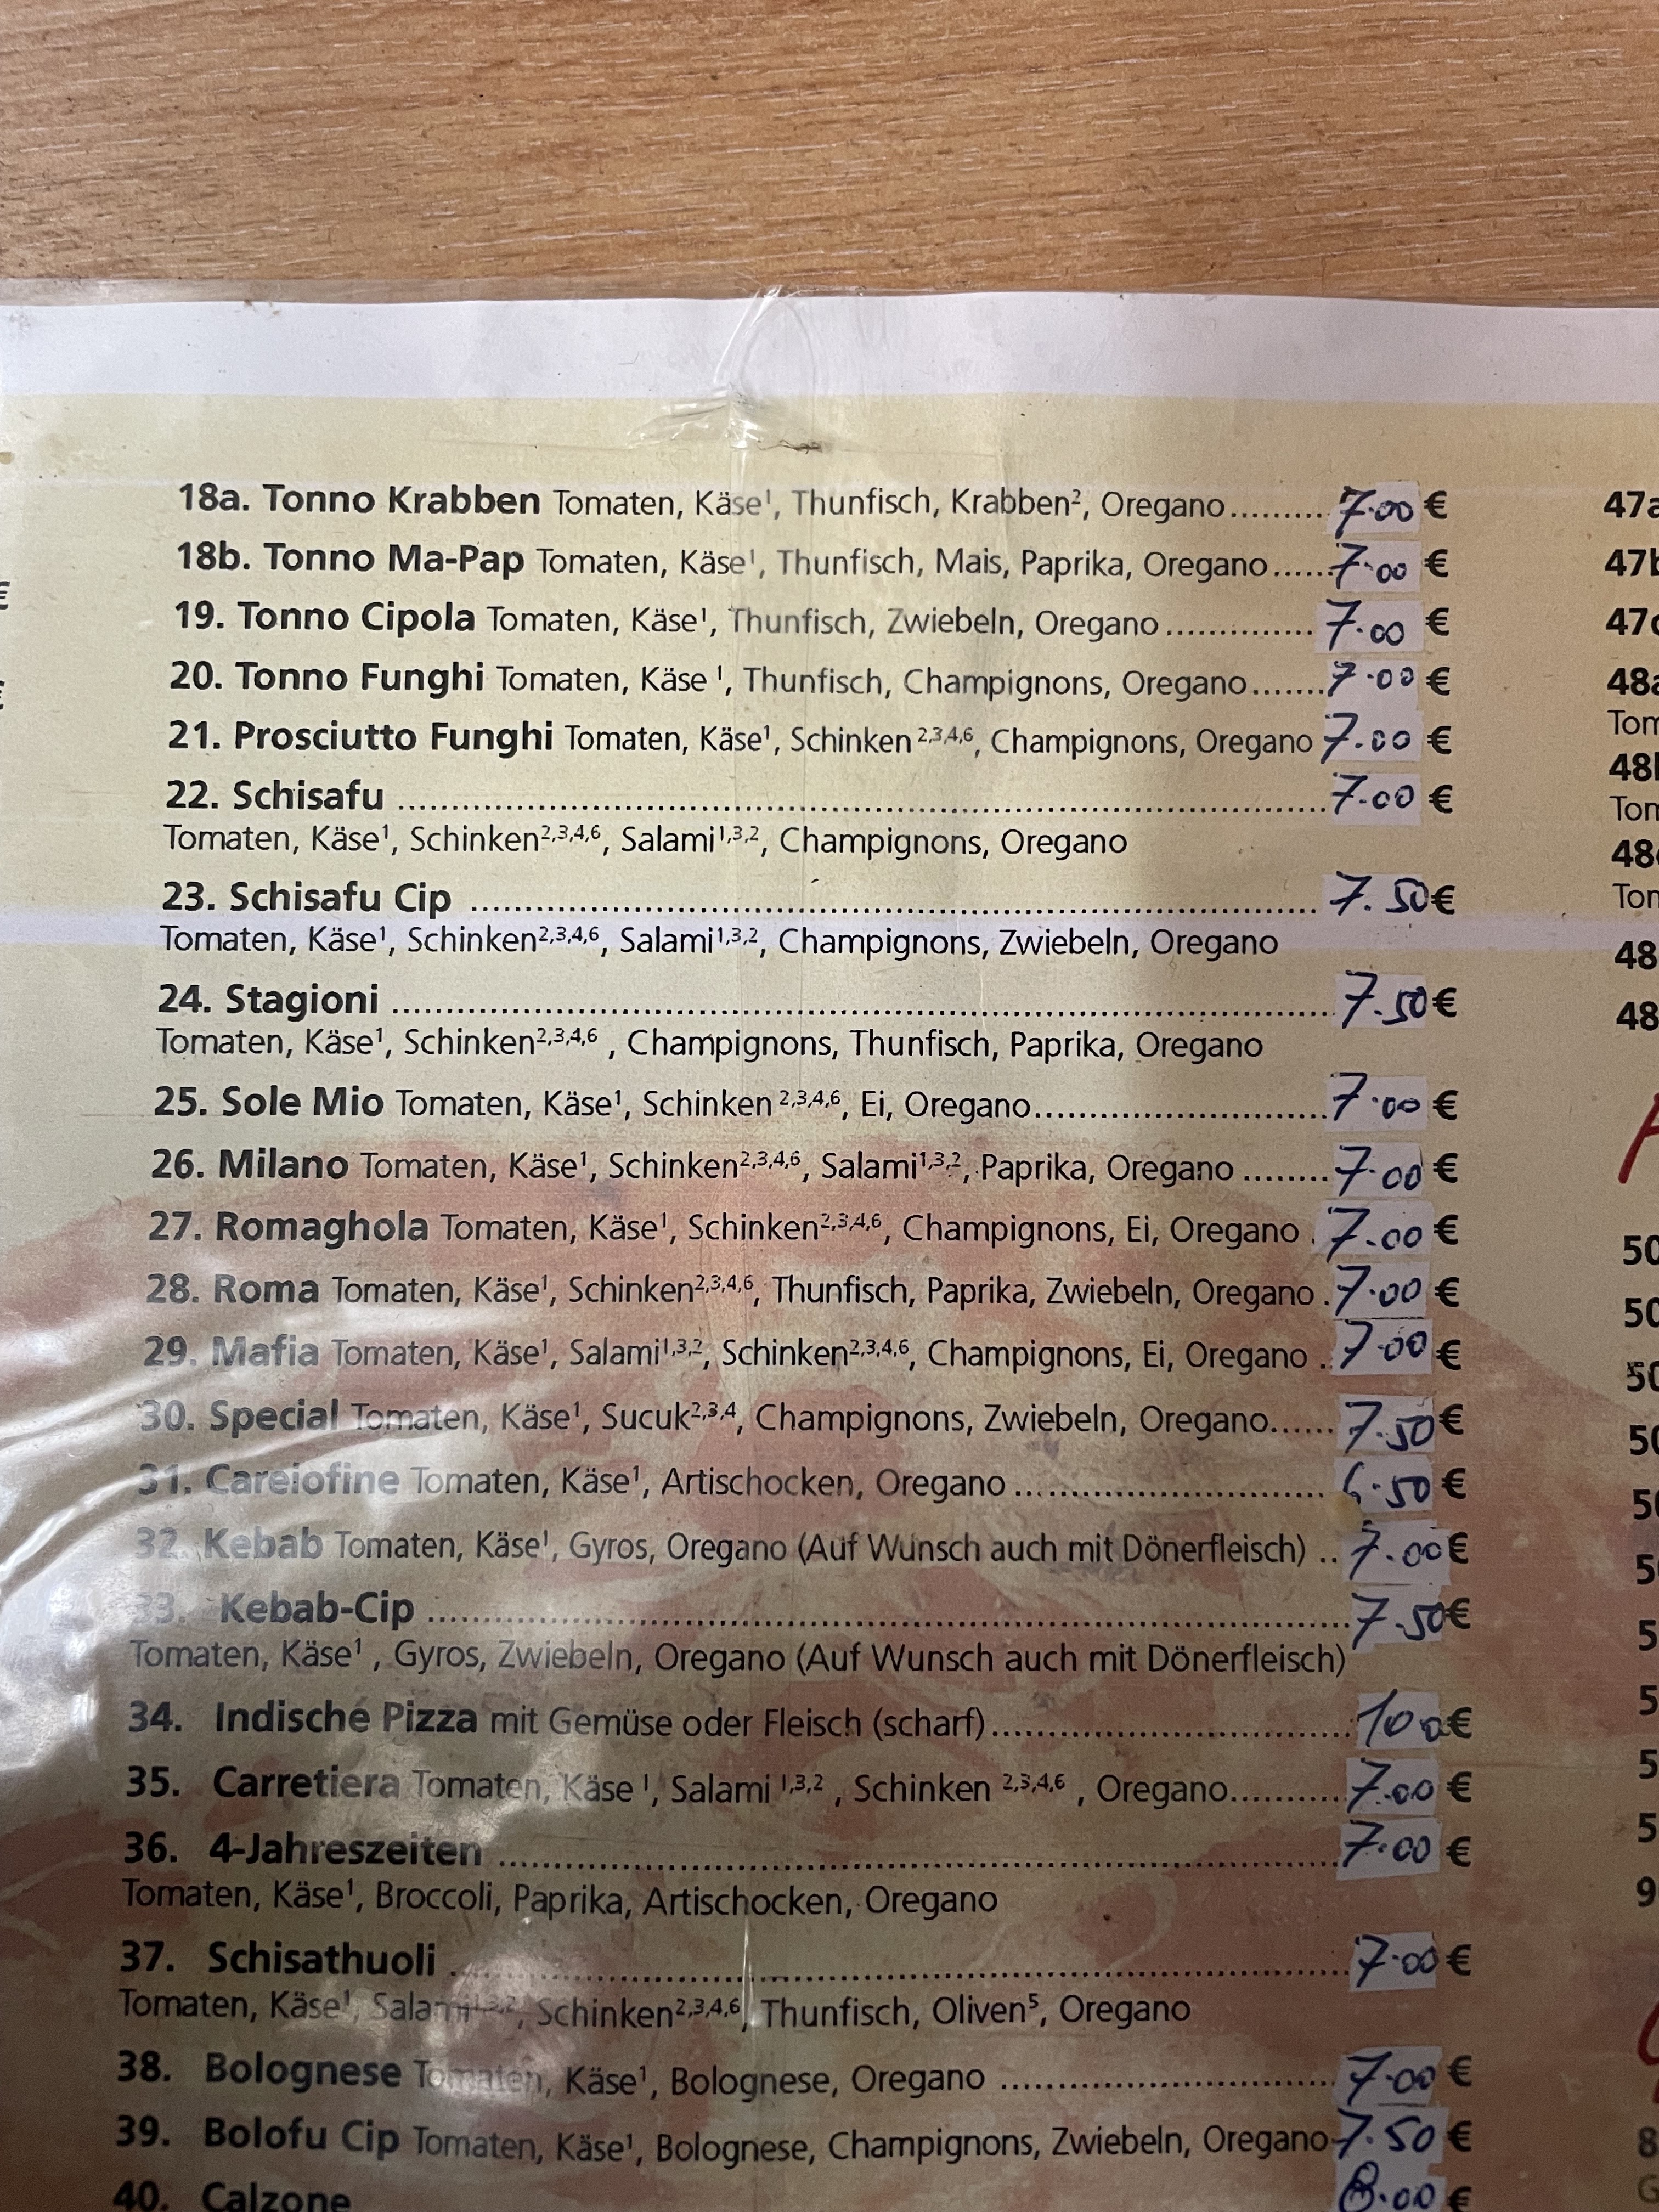 18a. Tonno Krabben Tomaten, Käse¹, Thunfisch, Krabben², Oregano......... 7.00 €
18b. Tonno Ma-Pap Tomaten, Käse¹, Thunfisch, Mais, Paprika, Oregano...... 7.00 €
19. Tonno Cipola Tomaten, Käse¹, Thunfisch, Zwiebeln, Oregano.............. 7.00 €
20. Tonno Funghi Tomaten, Käse ¹, Thunfisch, Champignons, Oregano....... 7.00 €
21. Prosciutto Funghi Tomaten, Käse¹, Schinken ²,³,⁴,⁶, Champignons, Oregano 7.00 €
22. Schisafu ........................................ 7.00 €
Tomaten, Käse¹, Schinken²,³,⁴,⁶, Salami¹,³,², Champignons, Oregano
23. Schisafu Cip ........................................ 7.50 €
Tomaten, Käse¹, Schinken²,³,⁴,⁶, Salami¹,³,², Champignons, Zwiebeln, Oregano
24. Stagioni ........................................ 7.50 €
Tomaten, Käse¹, Schinken²,³,⁴,⁶ , Champignons, Thunfisch, Paprika, Oregano
25. Sole Mio Tomaten, Käse¹, Schinken ²,³,⁴,⁶, Ei, Oregano........................... 7.00 €
26. Milano Tomaten, Käse¹, Schinken²,³,⁴,⁶, Salami¹,³,², Paprika, Oregano ........ 7.00 €
27. Romaghola Tomaten, Käse¹, Schinken²,³,⁴,⁶, Champignons, Ei, Oregano . 7.00 €
28. Roma Tomaten, Käse¹, Schinken²,³,⁴,⁶, Thunfisch, Paprika, Zwiebeln, Oregano . 7.00 €
29. Mafia Tomaten, Käse¹, Salami¹,³,², Schinken²,³,⁴,⁶, Champignons, Ei, Oregano .. 7.00 €
30. Special Tomaten, Käse¹, Sucuk²,³,⁴, Champignons, Zwiebeln, Oregano...... 7.50 €
31. Careiofine Tomaten, Käse¹, Artischocken, Oregano ............................. 6.50 €
32. Kebab Tomaten, Käse¹, Gyros, Oregano (Auf Wunsch auch mit Dönerfleisch) .. 7.00 €
33. Kebab-Cip ........................................ 7.50 €
Tomaten, Käse¹ , Gyros, Zwiebeln, Oregano (Auf Wunsch auch mit Dönerfleisch)
34. Indische Pizza mit Gemüse oder Fleisch (scharf)................................. €
35. Carretiera Tomaten, Käse ¹, Salami ¹,³,² , Schinken ²,³,⁴,⁶ , Oregano........... 7.00 €
36. 4-Jahreszeiten ........................................ 7.00 €
Tomaten, Käse¹, Broccoli, Paprika, Artischocken, Oregano
37. Schisathuoli ........................................ 7.00 €
Tomaten, Käse¹, Salami¹,³,², Schinken²,³,⁴,⁶, Thunfisch, Oliven⁵, Oregano
38. Bolognese Tomaten, Käse¹, Bolognese, Oregano ............................... 7.00 €
39. Bolofu Cip Tomaten, Käse¹, Bolognese, Champignons, Zwiebeln, Oregano 7.50 €
40. Calzone 8.00 €